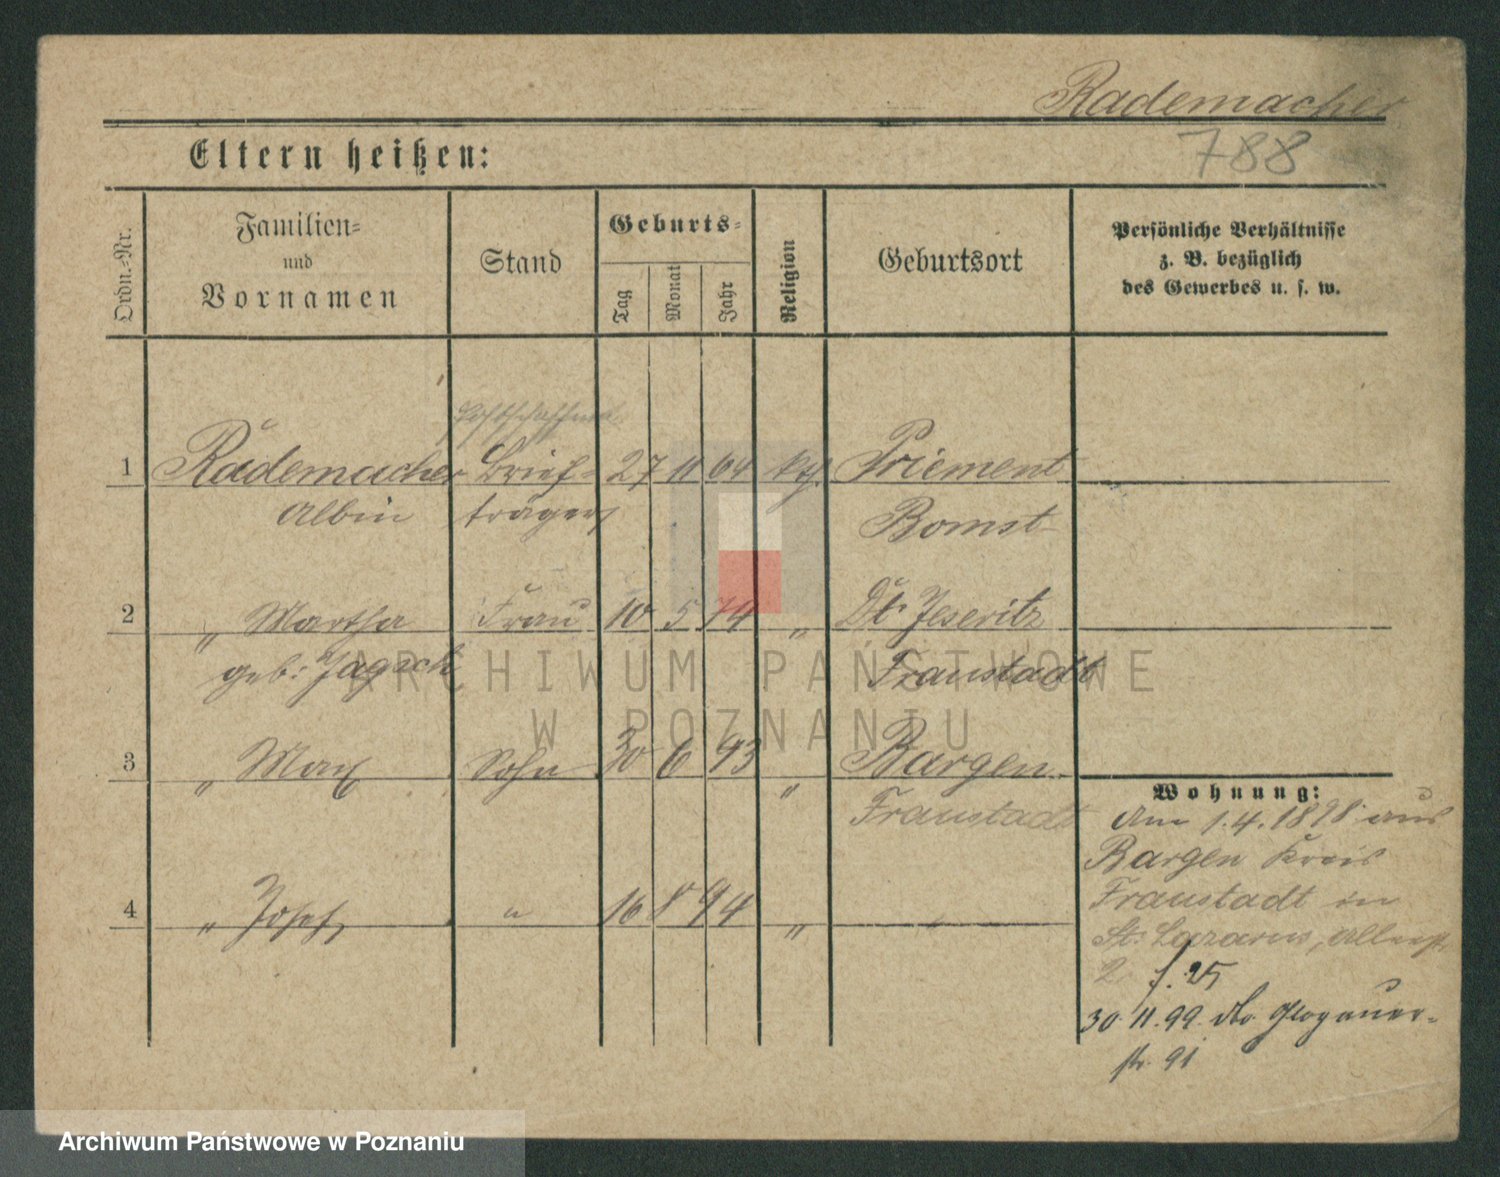 Rademacher
788
Eltern heißen:
Ordn.-Nr.
Familien-
und
Vornamen
Stand
Geburts-
Tag
Monat
Jahr
Religion
Geburtsort
Persönliche Verhältnisse
z. B. bezüglich
des Gewerbes u. s. w.
Postschaffner
1 Rademacher Brief- 27 11 64 kth. Priement
Albin träger Bomst
2 " Martha Frau 10 5 74 " Dt. Jeseritz
geb: Jagsch Fraustadt
3 " Max Sohn 30 6 93 " Bargen
Fraustadt
4 " Josef " 16 8 94 " "
Wohnung:
Am 1.4.1898 aus
Bargen Kreis
Fraustadt in
St. Lazarus,
2 f. 25
30.11.99. Glogauer-
str. 91
ARCHIWUM PAŃSTWOWE
W POZNANIU
Archiwum Państwowe w Poznaniu